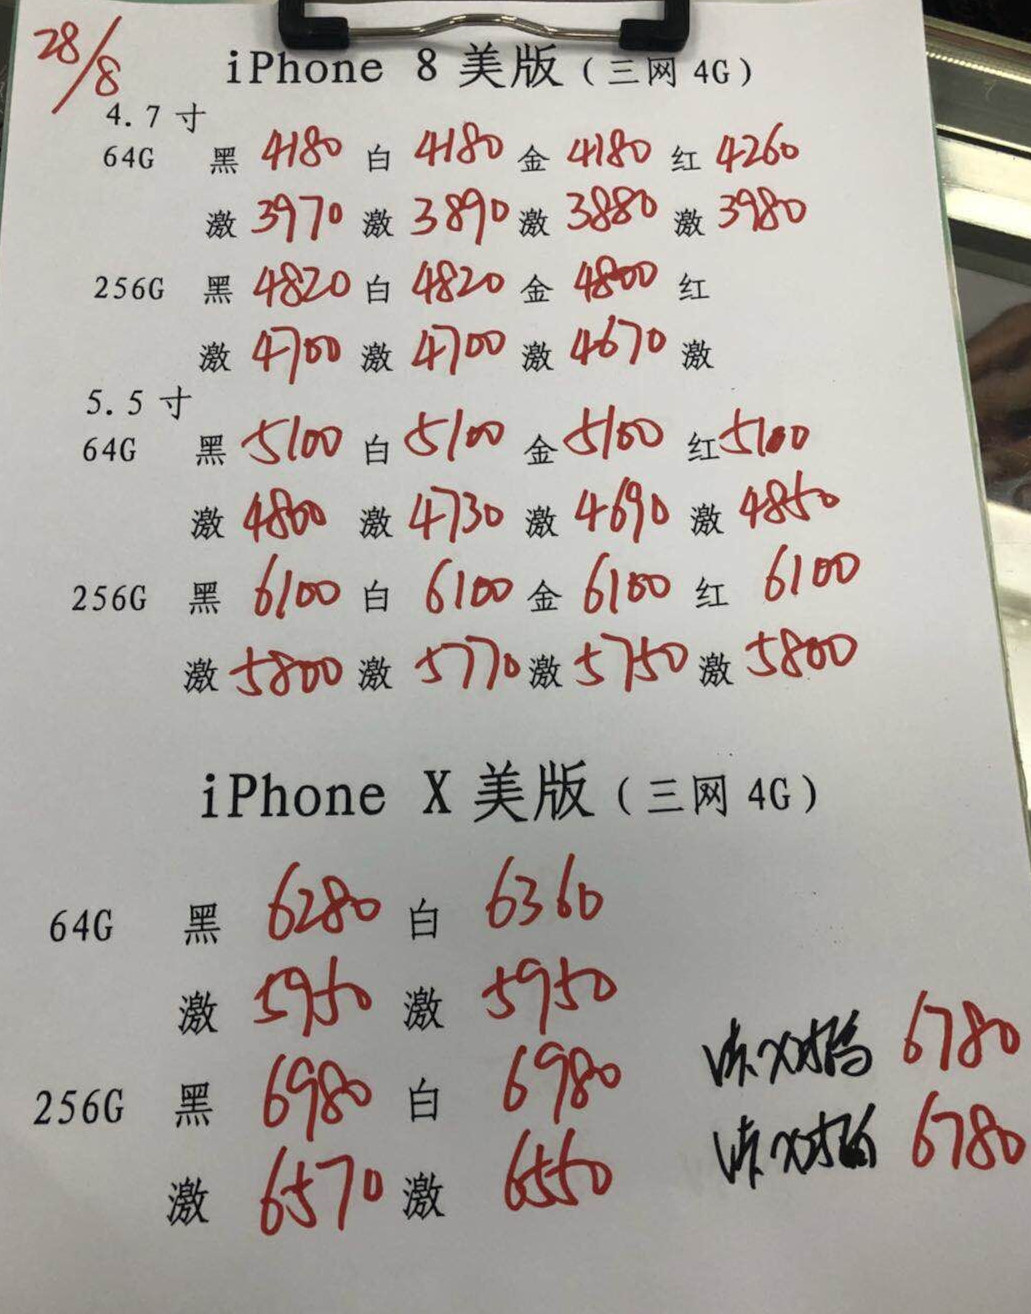 28/8
iPhone 8 美版(三网4G)
4.7寸
64G 黑 4180 白 4180 金 4180 红 4260
激 3970 激 3890 激 3880 激 3980
256G 黑 4820 白 4820 金 4800 红
激 4700 激 4700 激 4670 激
5.5寸
64G 黑 5100 白 5100 金 5100 红 5100
激 4800 激 4730 激 4690 激 4850
256G 黑 6100 白 6100 金 6100 红 6100
激 5800 激 5770 激 5750 激 5800
iPhone X 美版(三网4G)
64G 黑 6280 白 6360
激 5950 激 5950
6780
256G 黑 6980 白 6980
6780
激 6570 激 6550